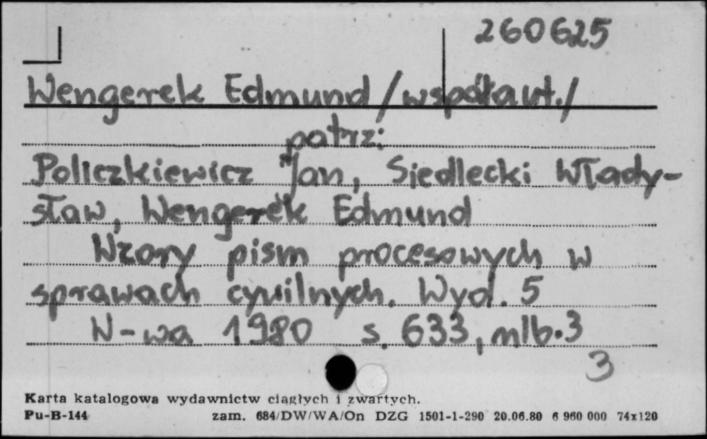 260625
Wengerek Edmund /współaut./
patrz:
Policzkiewicz Jan, Siedlecki Włady-
sław, Wengerek Edmund
Wzory pism procesowych w
sprawach cywilnych. Wyd. 5
W-wa 1980 s. 633, nlb. 3
3
Karta katalogowa wydawnictw ciągłych i zwartych.
Pu-B-144 zam. 684/DW/WA/On DZG 1501-1-290 20.06.80 6 960 000 74x120